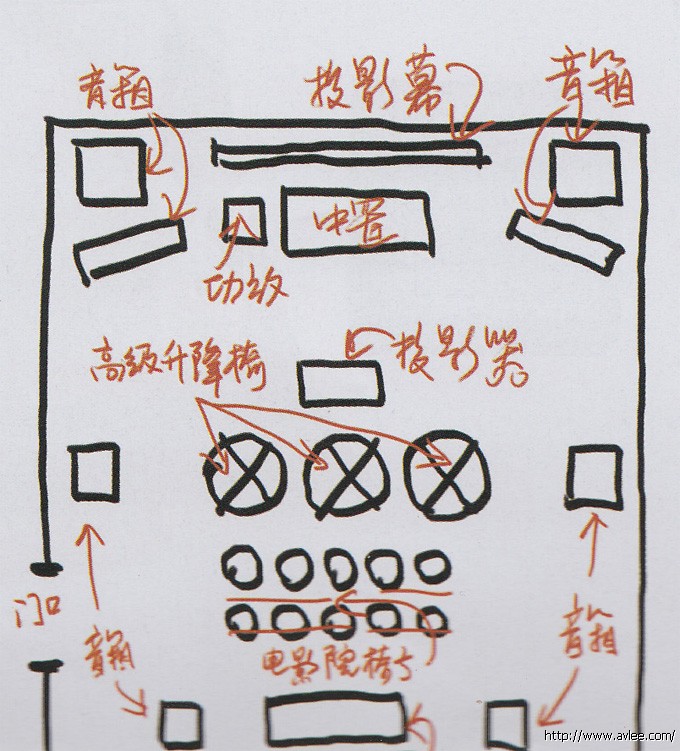 音箱
投影幕
音箱
中置
功放
高级升降椅
投影器
门口
音箱
音箱
电影院椅子
http://www.avlee.com/